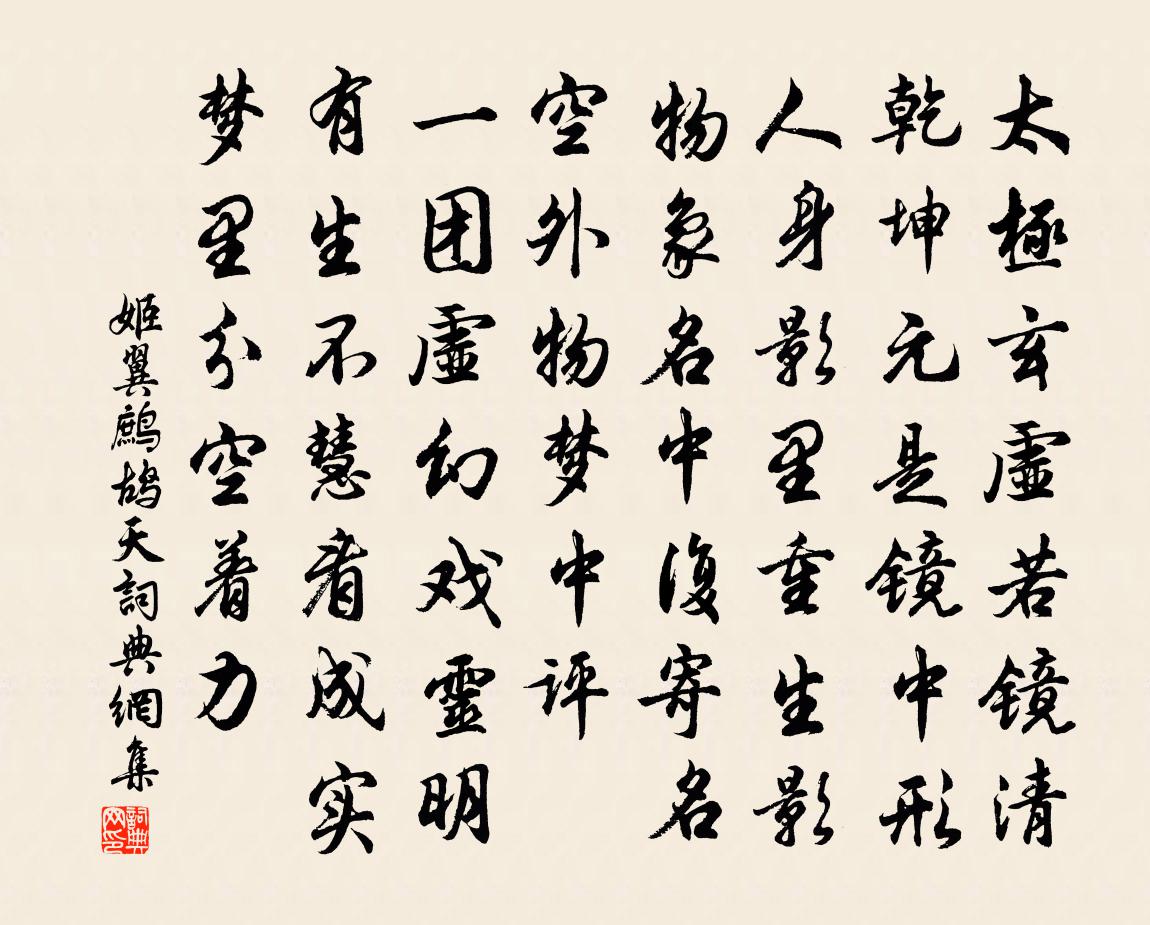 太極玄虛若镜清
乾坤元是镜中形
人身影里重生影
物象名中復寄名
空外物梦中评
一团虛幻戏靈明
有生不慧看成实
梦里分空着力
姬翼鷓鴣天詞典網集
詞典网印